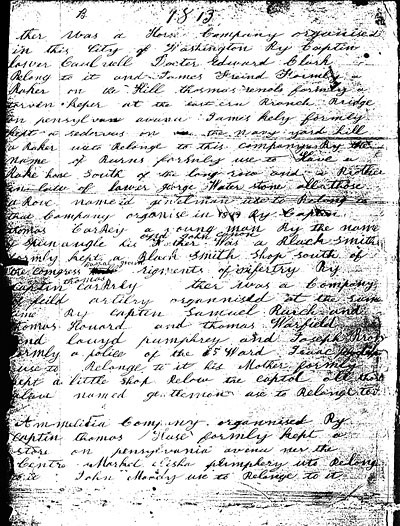 B 1813
ther was a Horse Company organised
in this City of Washington By Captin
Caudwell Docter Edward Clark
Belong to it and James Freind Formly a
Baker on the Hill thomas formly a
tavern Keper at the eastern Branch Bridge
on pensylvan avanu James Kely formly
kept a on the navy yard hill
a Baker use to Belonge to this company By the
name of Burns formly use to Have a
Bake house South of the long row and a Brother
in law of lower gorge Water stone all those
a Bove named gentlman use to Belong to
that Company organise in By Captin
thomas Carbey a oung man By the name
of his Father Was a Black Smith
formly kept a Black Smith Shop south of
the Congress rigments of infertry By
Captin thomas Carbky ther was a Company
of feild artilry organnised at the same
time By captin Samuel Burch and
thomas Howard and thomas Warfield
and lowyd pumphrey and Joseph
formly a police of the 5 Ward Isaac
use to Belonge to it his Mother formly
kept a little shop Below the capitol all those
above named gentlemen use to Belonge to
A mmilitia Company organnised By
Captin thomas formly kept a
store on pensylvania avenue ner the
Centre Market elisha plumphery use to Belong
to it John Moody use to Belonge to it